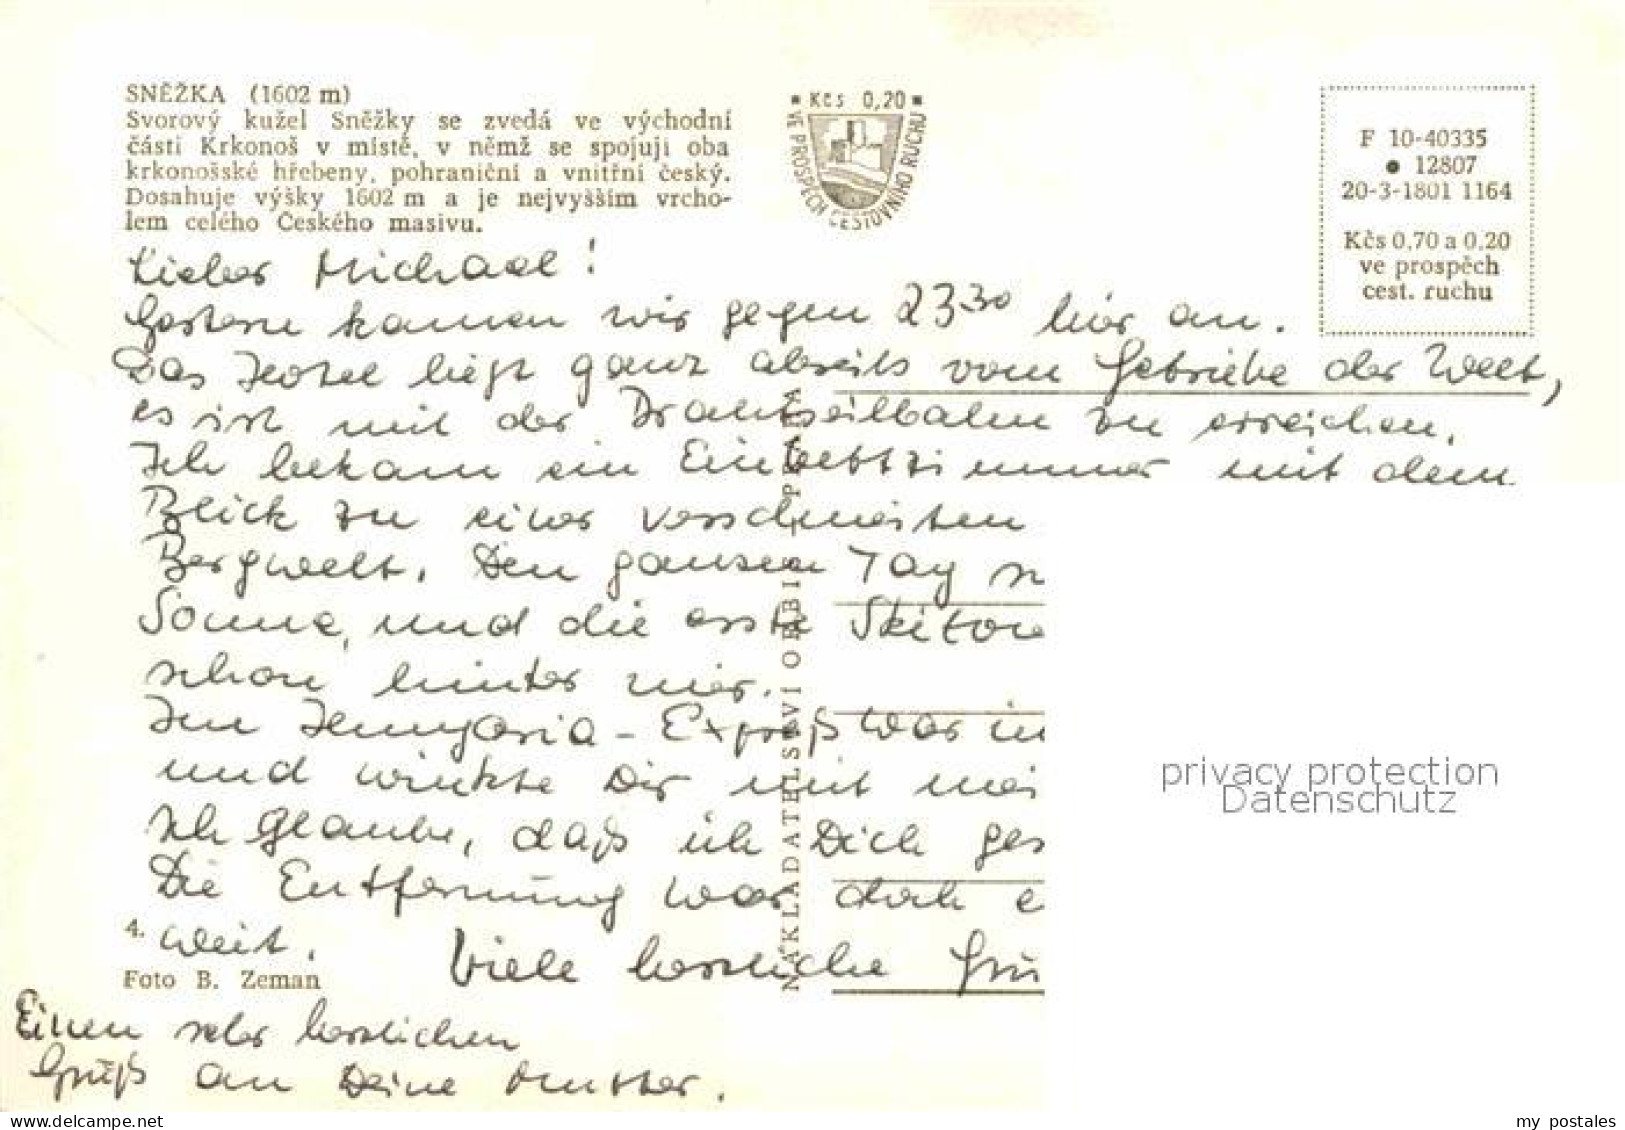 SNĚŽKA (1602 m)
Svorový kužel Sněžky se zvedá ve východní
části Krkonoš v místě, v němž se spojují oba
krkonošské hřebeny, pohraniční a vnitřní český.
Dosahuje výšky 1602 m a je nejvyšším vrcho-
lem celého Českého masivu.
Kčs 0,20
VE PROSPĚCH CESTOVNÍHO RUCHU
F 10-40335
● 12807
20-3-1801 1164
Kčs 0,70 a 0,20
ve prospěch
cest. ruchu
Lieber Michael!
Gestern kamen wir gegen 23³⁰ hier an.
Das Hotel liegt ganz abseits vom Getriebe der Welt,
es ist mit der Drahtseilbahn zu erreichen.
Ich bekam ein Einbettzimmer mit dem
Blick zu einer verschneiten
Bergwelt. Den ganzen Tag
Sonne, und die erste Skitou
schon hinter mir.
Im Hungaria-Expreß war
und winkte Dir mit mei
Ich glaube, daß ich Dich ges
Die Entfernung war doch e
weit.
Viele herzliche Grü
4.
Foto B. Zeman
Einen sehr herzlichen
Gruß an Deine Mutter.
NAKLADATELSTVÍ ORBIS, PRAHA
privacy protection
Datenschutz
Delcampe.net
my_postales